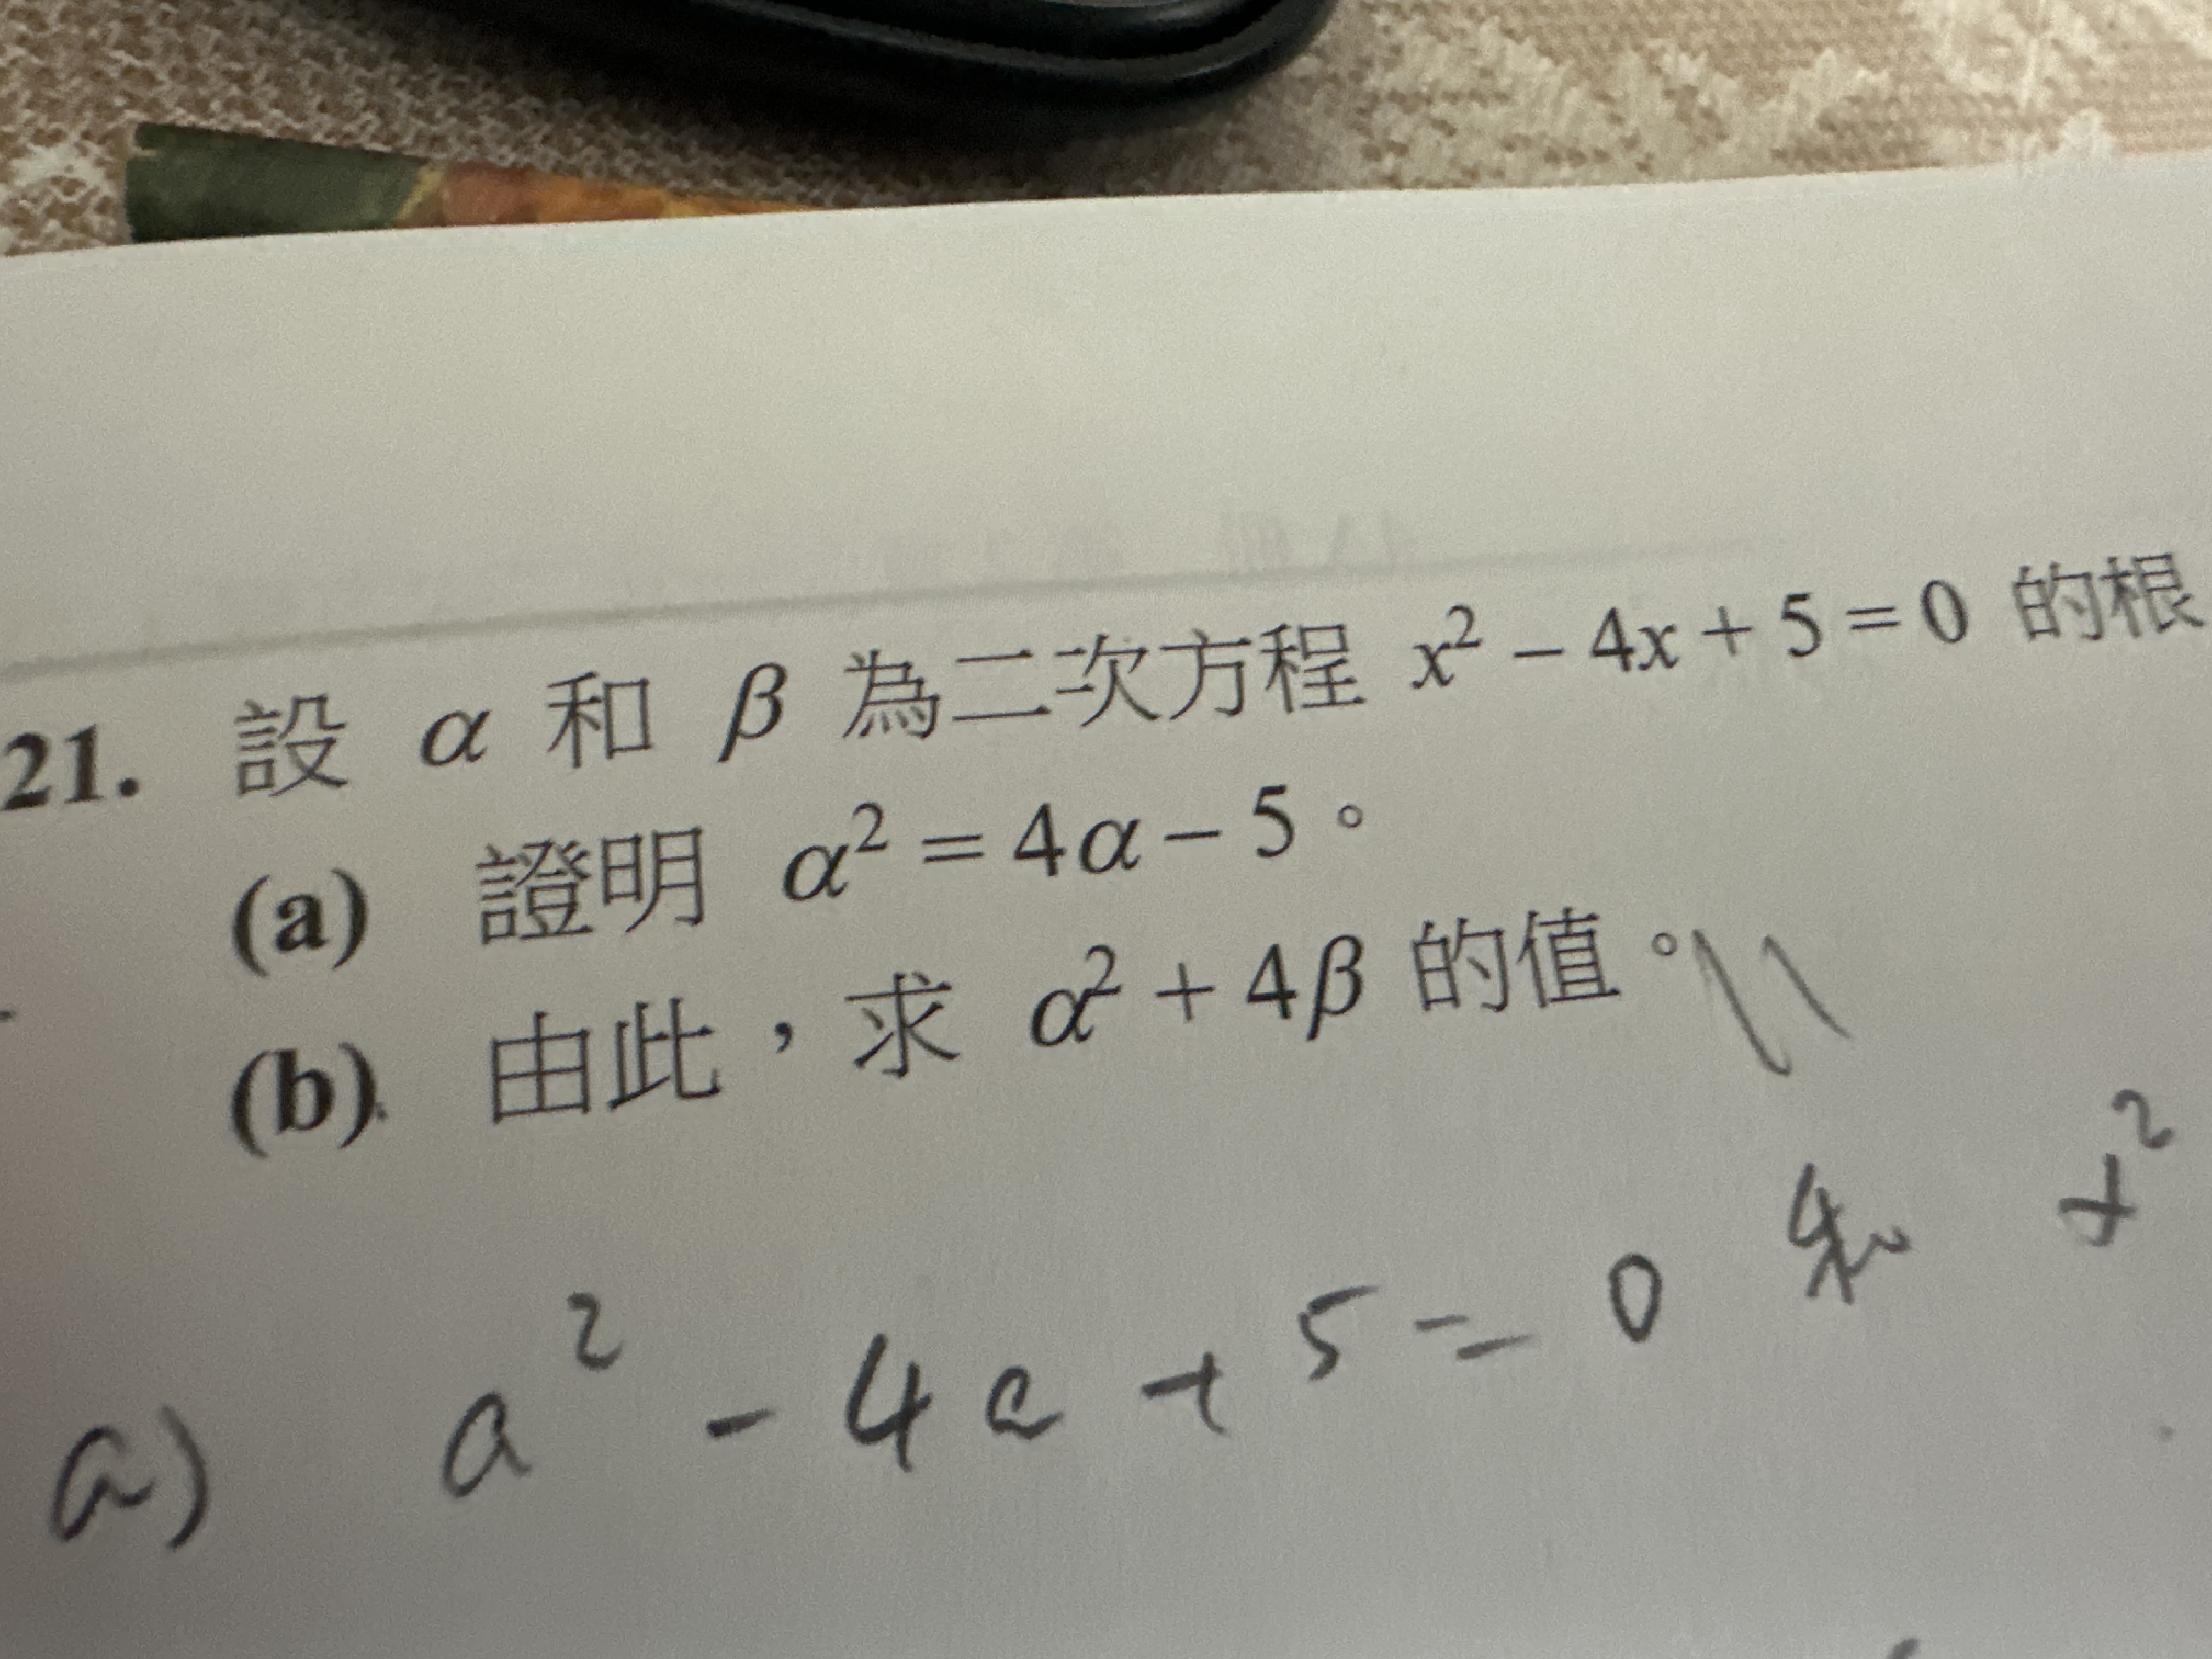 21. 設 α 和 β 為二次方程 x² − 4x + 5 = 0 的根
(a) 證明 α² = 4α − 5。
(b) 由此，求 α² + 4β 的值。
a) a² - 4a + 5 = 0